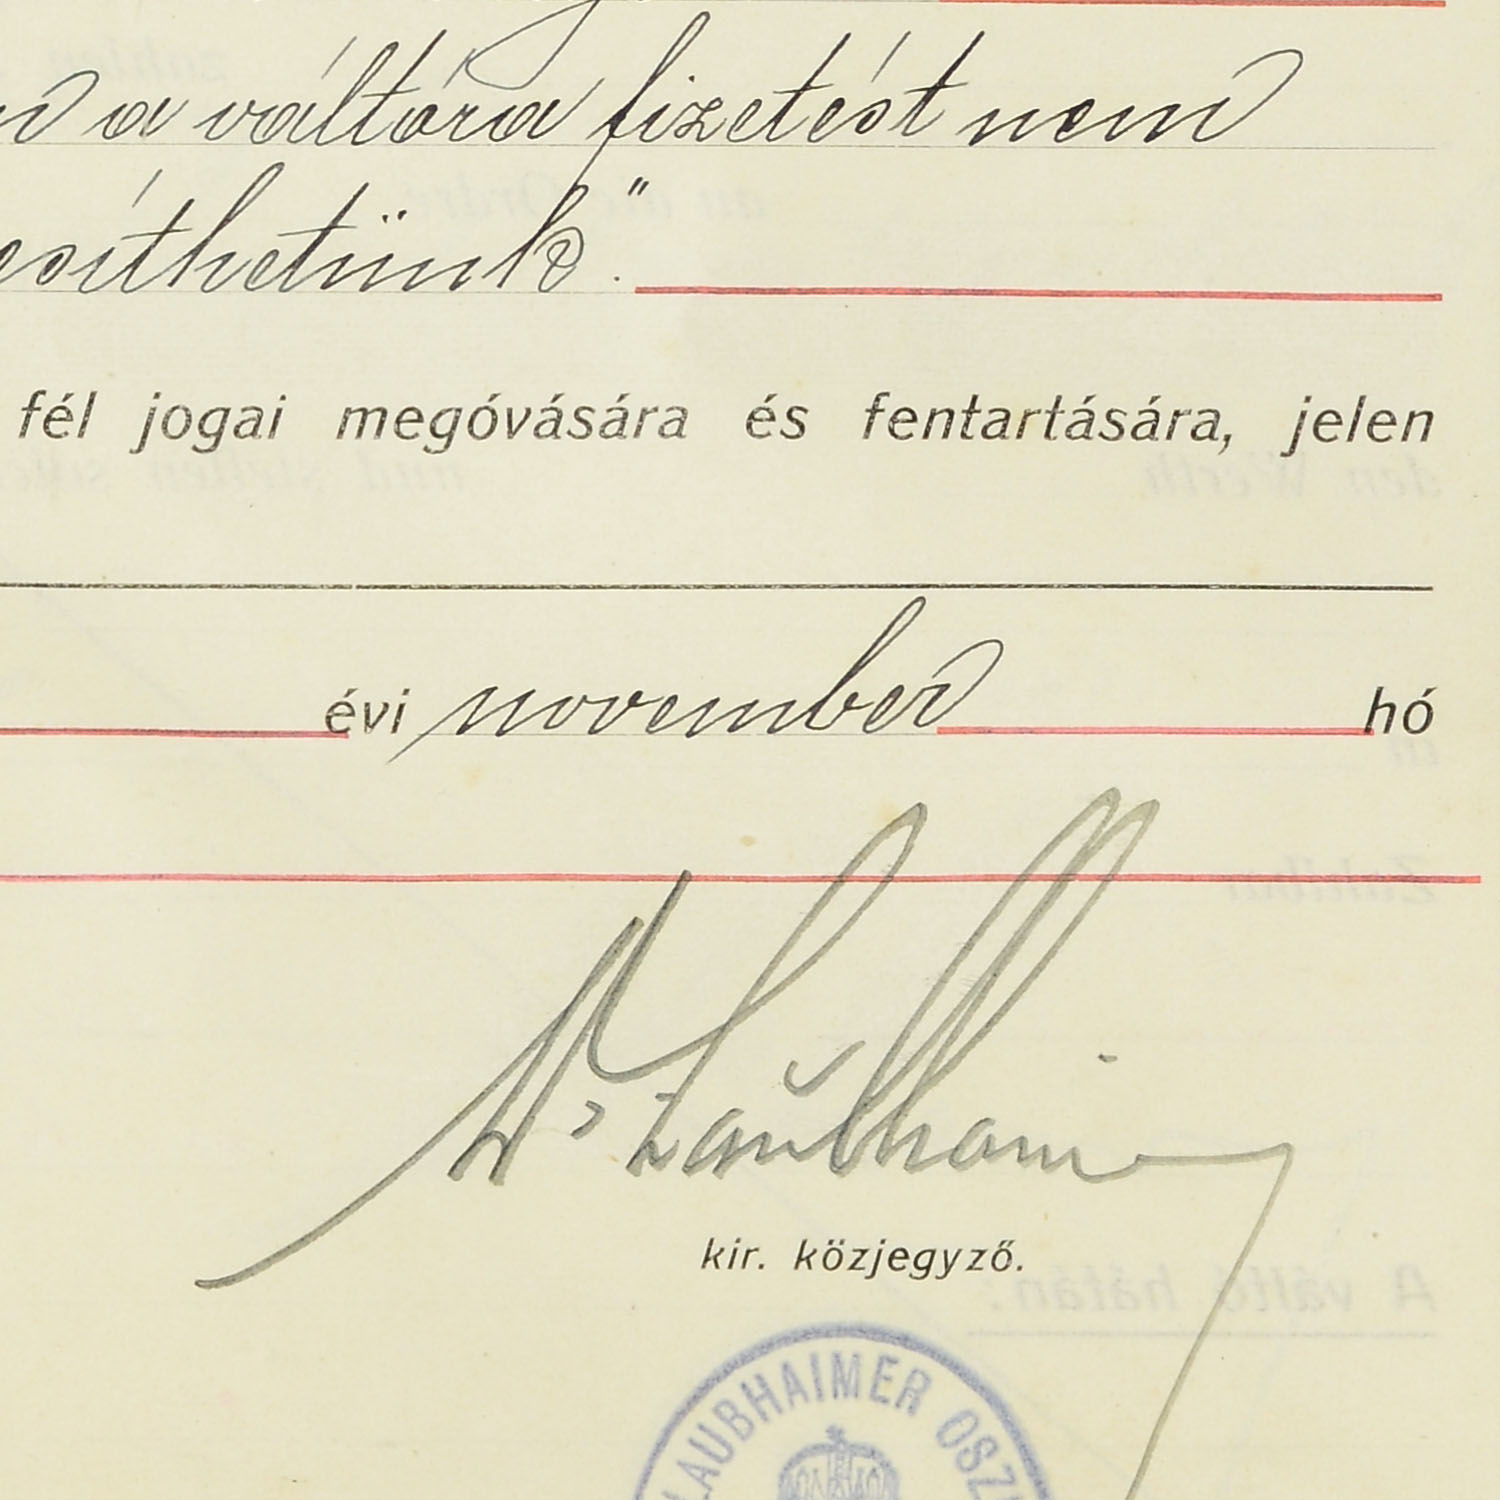 a váltóra fizetést nem
esíthetünk".
fél jogai megóvására és fentartására, jelen
évi november hó
Dr Laubhaimer
kir. közjegyző.
LAUBHAIMER OSZ
A váltó hátán: